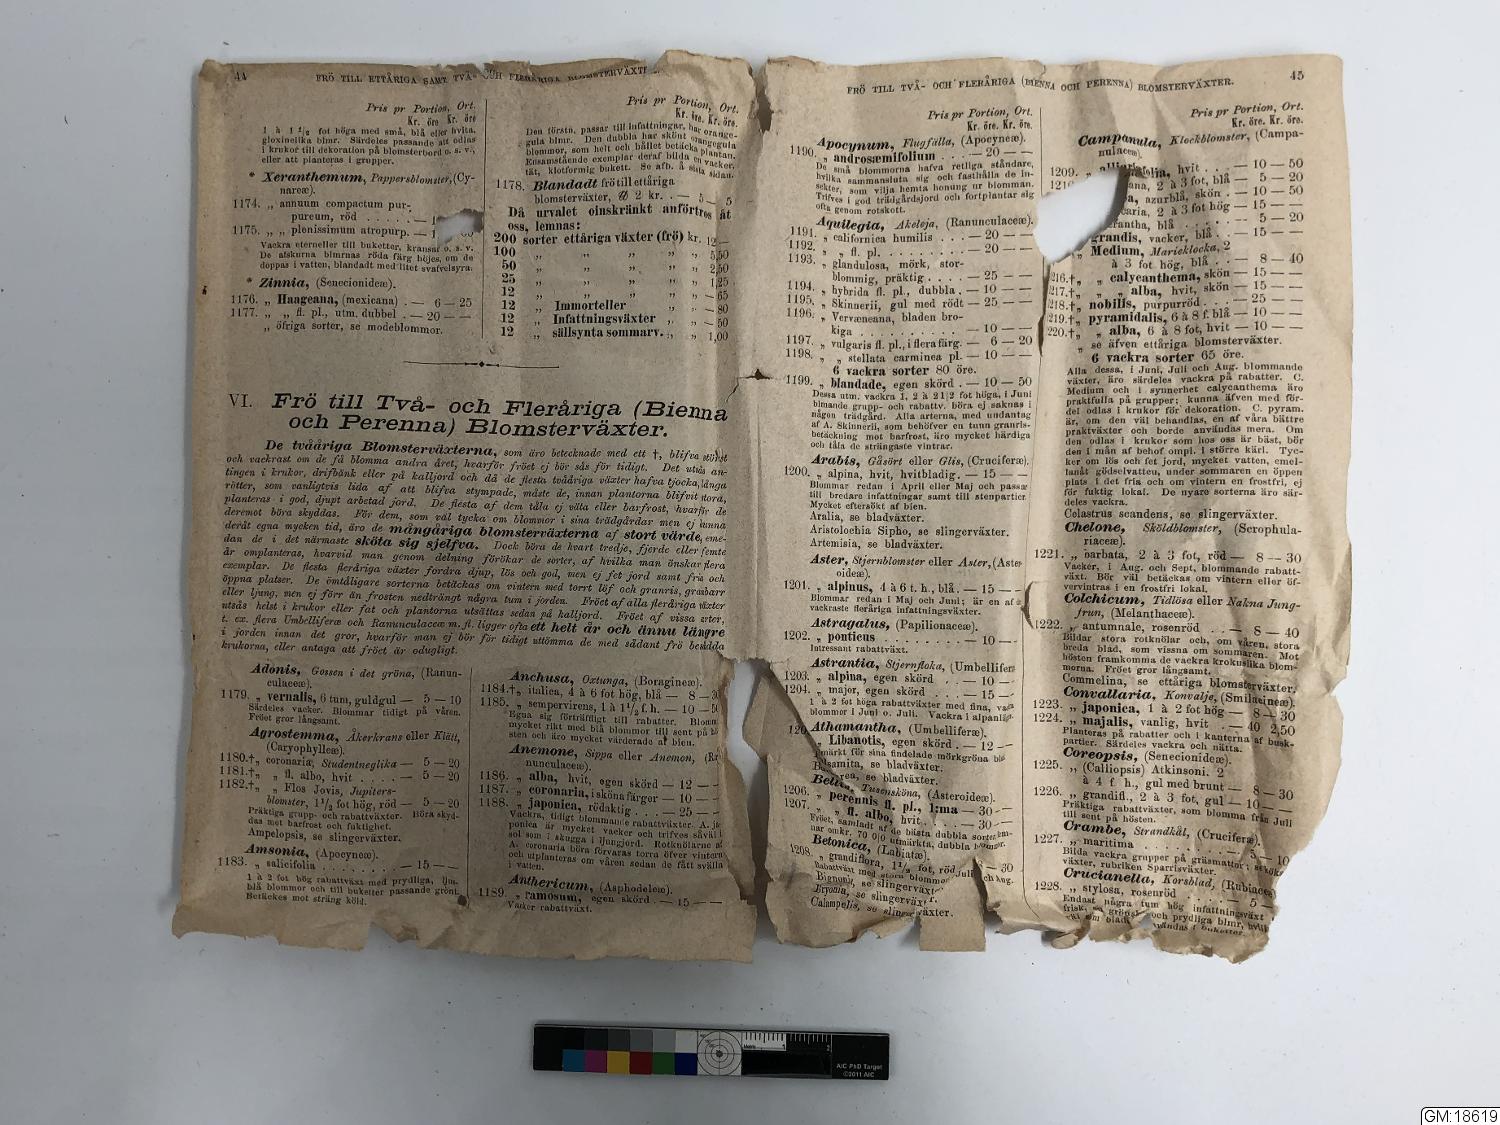 44 FRÖ TILL ETTÅRIGA SAMT TVÅ- OCH FLERÅRIGA BLOMSTERVÄXT
Pris pr Portion, Ort.
Kr. öre Kr. öre
1 à 1 1/2 fot höga med små, blå eller hvita,
gloxinelika blmr. Särdeles passande att odlas
i krukor till dekoration på blomsterbord o. s. v.,
eller att planteras i grupper.
* Xeranthemum, Pappersblomster, (Cy-
nareæ).
1174. „ annuum compactum pur-
pureum, röd . . . . . — 1
1175. „ „ plenissimum atropurp. — 1
Vackra eterneller till buketter, kransar o. s. v.
De afskurna blmrnas röda färg höjes, om de
doppas i vatten, blandadt med litet svafvelsyra.
* Zinnia, (Senecionideæ).
1176. „ Haageana, (mexicana) . — 6 — 25
1177. „ „ fl. pl., utm. dubbel . — 20 — —
„ öfriga sorter, se modeblommor.
Pris pr Portion, Ort.
Kr. öre. Kr. öre.
Den förstn. passar till infattningar, har orange-
gula blmr. Den dubbla har skönt orangegula
blommor, som helt och hållet betäcka plantan.
Ensamstående exemplar deraf bilda en vacker,
tät, klotformig bukett. Se afb. å sista sidan.
1178. Blandadt frö till ettåriga
blomsterväxter, ℔ 2 kr. . — 5 — 5
Då urvalet oinskränkt anförtros åt
oss, lemnas:
200 sorter ettåriga växter (frö) kr. 12 —
100 „ „ „ „ „ 5,50
50 „ „ „ „ „ 2,50
25 „ „ „ „ „ 1,25
12 „ „ „ „ „ —65
12 „ Immorteller „ „ —80
12 „ Infattningsväxter „ „ —50
12 „ sällsynta sommarv. „ „ 1,00
VI. Frö till Två- och Fleråriga (Bienna
och Perenna) Blomsterväxter.
De tvååriga Blomsterväxterna, som äro betecknade med ett †, blifva störst
och vackrast om de få blomma andra året, hvarför fröet ej bör sås för tidigt. Det utsås an-
tingen i krukor, drifbänk eller på kalljord och då de flesta tvååriga växter hafva tjocka, långa
rötter, som vanligtvis lida af att blifva stympade, måste de, innan plantorna blifvit stora,
planteras i god, djupt arbetad jord. De flesta af dem tåla ej väta eller barfrost, hvarför de
deremot böra skyddas. För dem, som väl tycka om blommor i sina trädgårdar men ej kunna
deråt egna mycken tid, äro de mångåriga blomsterväxterna af stort värde, eme-
dan de i det närmaste sköta sig sjelfva. Dock böra de hvart tredje, fjerde eller femte
år omplanteras, hvarvid man genom delning förökar de sorter, af hvilka man önskar flera
exemplar. De flesta fleråriga växter fordra djup, lös och god, men ej fet jord samt fria och
öppna platser. De ömtåligare sorterna betäckas om vintern med torrt löf och granris, granbarr
eller ljung, men ej förr än frosten nedträngt några tum i jorden. Fröet af alla fleråriga växter
utsås helst i krukor eller fat och plantorna utsättas sedan på kalljord. Fröet af vissa arter,
t. ex. flera Umbelliferæ och Ranunculaceæ m. fl. ligger ofta ett helt år och ännu längre
i jorden innan det gror, hvarför man ej bör för tidigt uttömma de med sådant frö besådda
krukorna, eller antaga att fröet är odugligt.
Adonis, Gossen i det gröna, (Ranun-
culaceæ).
1179. „ vernalis, 6 tum, guldgul — 5 — 10
Särdeles vacker. Blommar tidigt på våren.
Fröet gror långsamt.
Agrostemma, Åkerkrans eller Klätt,
(Caryophylleæ).
1180.†„ coronaria, Studentneglika — 5 — 20
1181.†„ „ fl. albo, hvit . . . . — 5 — 20
1182.†„ „ Flos Jovis, Jupiters-
blomster, 1 1/2 fot hög, röd — 5 — 20
Präktiga grupp- och rabattväxter. Böra skyd-
das mot barfrost och fuktighet.
Ampelopsis, se slingerväxter.
Amsonia, (Apocyneæ).
1183. „ salicifolia . . . . . . . . — 15 — —
1 à 2 fot hög rabattväxt med prydliga, ljus-
blå blommor och till buketter passande grönt.
Betäckes mot sträng köld.
Anchusa, Oxtunga, (Boragineæ).
1184.†„ italica, 4 à 6 fot hög, blå — 8 — 30
1185. „ sempervirens, 1 à 1 1/2 f. h. — 10 — 50
Egna sig förträffligt till rabatter. Blomm
mycket rikt med blå blommor till sent på hö
sten och äro mycket värderade af bien.
Anemone, Sippa eller Anemon, (Ra
nunculaceæ).
1186. „ alba, hvit, egen skörd — 12 — —
1187. „ coronaria, i sköna färger — 10 — —
1188. „ japonica, rödaktig . . . — 25 — —
Vackra, tidigt blommande rabattväxter. A. ja-
ponica är mycket vacker och trifves såväl i
sol som i skugga i ljungjord. Rotknölarne af
A. coronaria böra förvaras torra öfver vintern
och utplanteras om våren sedan de fått svälla
i vatten.
Anthericum, (Asphodeleæ).
1189 „ ramosum, egen skörd . — 15 — —
Vacker rabattväxt.
FRÖ TILL TVÅ- OCH FLERÅRIGA (BIENNA OCH PERENNA) BLOMSTERVÄXTER. 45
Pris pr Portion, Ort.
Kr. öre. Kr. öre.
Apocynum, Flugfälla, (Apocyneæ).
1190. „ androsæmifolium . . . — 20 — —
De små blommorna hafva retliga ståndare,
hvilka sammansluta sig och fasthålla de in-
sekter, som vilja hemta honung ur blomman.
Trifves i god trädgårdsjord och fortplantar sig
ofta genom rotskott.
Aquilegia, Akeleja, (Ranunculaceæ).
1191. „ californica humilis . . . — 20 — —
1192. „ „ fl. pl. . . . . . . . . — 20 — —
1193. „ glandulosa, mörk, stor-
blommig, präktig . . . . — 25 — —
1194. „ hybrida fl. pl., dubbla . — 10 — —
1195. „ Skinnerii, gul med rödt — 25 — —
1196. „ Vervæneana, bladen bro-
kiga . . . . . . . . . . — 10 — —
1197. „ vulgaris fl. pl., i flera färg. — 6 — 20
1198. „ „ stellata carminea pl. — 10 — —
6 vackra sorter 80 öre.
1199. „ blandade, egen skörd . — 10 — 50
Dessa utm. vackra 1, 2 à 2 1|2 fot höga, i Juni
blmande grupp- och rabattv. böra ej saknas i
någon trädgård. Alla arterna, med undantag
af A. Skinnerii, som behöfver en tunn granris-
betäckning mot barfrost, äro mycket härdiga
och tåla de strängaste vintrar.
Arabis, Gåsört eller Glis, (Cruciferæ).
1200. „ alpina, hvit, hvitbladig. — 15 — —
Blommar redan i April eller Maj och passar
till bredare infattningar samt till stenpartier.
Mycket eftersökt af bien.
Aralia, se bladväxter.
Aristolochia Sipho, se slingerväxter.
Artemisia, se bladväxter.
Aster, Stjernblomster eller Aster, (Aster-
oideæ).
1201. „ alpinus, 4 à 6 t. h., blå. — 15 —
Blommar redan i Maj och Juni; är en af de
vackraste fleråriga infattningsväxter.
Astragalus, (Papilionaceæ).
1202. „ ponticus . . . . . . . — 10 —
Intressant rabattväxt.
Astrantia, Stjernfloka, (Umbellifer
1203. „ alpina, egen skörd . . — 10 —
1204. „ major, egen skörd . . . — 15 —
1 à 2 fot höga rabattväxter med fina, va
blommor i Juni o. Juli. Vackra i alpanläg
Athamantha, (Umbelliferæ).
120 „ Libanotis, egen skörd . — 12 —
märkt för sina findelade mörkgröna bla
lsamita, se bladväxter.
rea, se bladväxter.
Belli Tusensköna, (Asteroideæ).
1206. „ perennis fl. pl., 1:ma — 30 —
1207. „ „ fl. albo, hvit . . . — 30 — —
Fröet, samladt af de bästa dubbla sorter
nar omkr. 70 0|0 utmärkta, dubbla blommor.
Betonica, (Labiatæ).
1208. „ grandiflora, 1 1/2 fot, röd — 30
Rabattväxt med stora blommor Juli och Aug.
Bignonia, se slingerväxter.
Bryonia, se slingerväxter.
Calampelis, se slingerväxter.
Pris pr Portion, Ort.
Kr. öre. Kr. öre.
Campanula, Klockblomster, (Campa-
nulaceæ).
1209. „ hvit . . . — 10 — 50
ana, 2 à 3 fot, blå — 5 — 20
a, azurblå, skön . — 10 — 50
caria, 2 à 3 fot hög — 15 — —
erantha, blå . . . . — 5 — 20
grandis, vacker, blå . — 15 — —
„ Medium, Marieklocka, 2
à 3 fot hög, blå . . — 8 — 40
216.†„ „ calycanthema, skön — 15 — —
217.†„ „ „ alba, hvit, skön — 15 — —
218.†„ nobilis, purpurröd . . . — 25 — —
219.†„ pyramidalis, 6 à 8 f. blå — 10 — —
220.†„ „ alba, 6 à 8 fot, hvit — 10 — —
„ se äfven ettåriga blomsterväxter.
6 vackra sorter 65 öre.
Alla dessa, i Juni, Juli och Aug. blommande
växter, äro särdeles vackra på rabatter. C.
Medium och i synnerhet calycanthema äro
praktfulla på grupper; kunna äfven med för-
del odlas i krukor för dekoration. C. pyram.
är, om den väl behandlas, en af våra bättre
praktväxter och borde användas mera. Om
den odlas i krukor som hos oss är bäst, bör
den i mån af behof ompl. i större kärl. Tyc-
ker om lös och fet jord, mycket vatten, emel-
lanåt gödselvatten, under sommaren en öppen
plats i det fria och om vintern en frostfri, ej
för fuktig lokal. De nyare sorterna äro sär-
deles vackra.
Celastrus scandens, se slingerväxter.
Chelone, Sköldblomster, (Scrophula-
riaceæ).
1221. „ barbata, 2 à 3 fot, röd — 8 — 30
Vacker, i Aug. och Sept. blommande rabatt-
växt. Bör väl betäckas om vintern eller öf-
vervintras i en frostfri lokal.
Colchicum, Tidlösa eller Nakna Jung-
frun, (Melanthaceæ).
1222. „ autumnale, rosenröd . . — 8 — 40
Bildar stora rotknölar och, om våren, stora
breda blad, som vissna om sommaren. Mot
hösten framkomma de vackra krokuslika blom-
morna. Fröet gror långsamt.
Commelina, se ettåriga blomsterväxter.
Convallaria, Konvalje, (Smilacineæ).
1223. „ japonica, 1 à 2 fot hög — 8 — 30
1224. „ majalis, vanlig, hvit . — 40 2,50
Planteras på rabatter och i kanterna af busk-
partier. Särdeles vackra och nätta.
Coreopsis, (Senecionideæ).
1225. „ (Calliopsis) Atkinsoni. 2
à 4 f. h., gul med brunt — 8 — 30
1226. „ grandifl., 2 à 3 fot, gul — 10 — —
Präktiga rabattväxter, som blomma från Juli
till sent på hösten.
Crambe, Strandkål, (Cruciferæ).
1227. „ maritima . . . . . . . — 5 — 10
Bilda vackra grupper på gräsmattor; se köks-
växter, rubriken Sparrisväxter.
Crucianella, Korsblad, (Rubiaceæ
1228. „ stylosa, rosenröd . . . — 5 —
Endast några tum hög infattningsväxt
frisk, grönska och prydliga blmr, hvilk